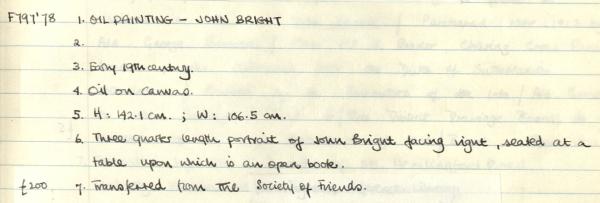 F797'78 1. OIL PAINTING - JOHN BRIGHT
2.
3. Early 19th century.
4. Oil on canvas.
5. H: 142.1 cm. ; W: 106.5 cm.
6. Three quarter length portrait of John Bright facing right, seated at a
table upon which is an open book.
£200 7. Transferred from the Society of Friends.